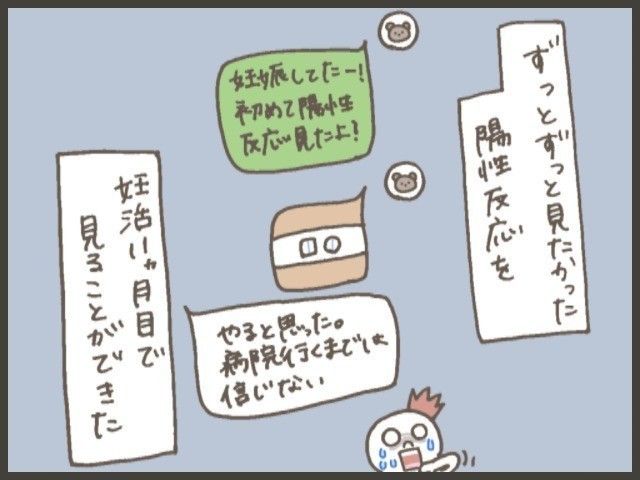 ずっとずっと見たかった
陽性反応を
妊娠してたー!
初めて陽性
反応見たよ?
やると思った。
病院行くまでは
信じない
妊活11ヶ月目で
見ることができた